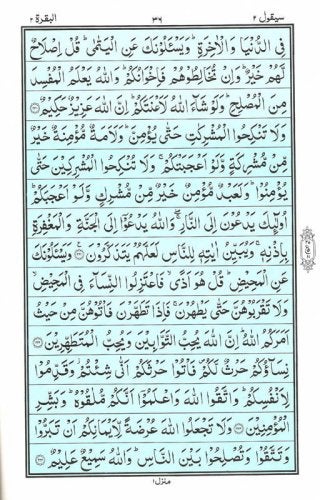 سيقول ٢ ٣٦ البقرة ٢
فِى الدُّنْيَا وَالْاٰخِرَةِ ؕ وَيَسْـَٔلُوْنَكَ عَنِ الْيَتٰمٰى ؕ قُلْ اِصْلَاحٌ
لَّهُمْ خَيْرٌ ؕ وَاِنْ تُخَالِطُوْهُمْ فَاِخْوَانُكُمْ ؕ وَاللّٰهُ يَعْلَمُ الْمُفْسِدَ
مِنَ الْمُصْلِحِ ؕ وَلَوْ شَآءَ اللّٰهُ لَاَعْنَتَكُمْ ؕ اِنَّ اللّٰهَ عَزِيْزٌ حَكِيْمٌ ﴿۲۲۰﴾
وَلَا تَنْكِحُوا الْمُشْرِكٰتِ حَتّٰى يُؤْمِنَّ ؕ وَلَاَمَةٌ مُّؤْمِنَةٌ خَيْرٌ
مِّنْ مُّشْرِكَةٍ وَّلَوْ اَعْجَبَتْكُمْ ۚ وَلَا تُنْكِحُوا الْمُشْرِكِيْنَ حَتّٰى
يُؤْمِنُوْا ؕ وَلَعَبْدٌ مُّؤْمِنٌ خَيْرٌ مِّنْ مُّشْرِكٍ وَّلَوْ اَعْجَبَكُمْ ؕ
اُولٰٓئِكَ يَدْعُوْنَ اِلَى النَّارِ ۖ وَاللّٰهُ يَدْعُوْٓا اِلَى الْجَنَّةِ وَالْمَغْفِرَةِ
بِاِذْنِهٖ ۚ وَيُبَيِّنُ اٰيٰتِهٖ لِلنَّاسِ لَعَلَّهُمْ يَتَذَكَّرُوْنَ ﴿۲۲۱﴾ وَيَسْـَٔلُوْنَكَ
عَنِ الْمَحِيْضِ ؕ قُلْ هُوَ اَذًى ۙ فَاعْتَزِلُوا النِّسَآءَ فِى الْمَحِيْضِ ۙ
وَلَا تَقْرَبُوْهُنَّ حَتّٰى يَطْهُرْنَ ۚ فَاِذَا تَطَهَّرْنَ فَاْتُوْهُنَّ مِنْ حَيْثُ
اَمَرَكُمُ اللّٰهُ ؕ اِنَّ اللّٰهَ يُحِبُّ التَّوَّابِيْنَ وَيُحِبُّ الْمُتَطَهِّرِيْنَ ﴿۲۲۲﴾
نِسَآؤُكُمْ حَرْثٌ لَّكُمْ ۪ فَاْتُوْا حَرْثَكُمْ اَنّٰى شِئْتُمْ ۫ وَقَدِّمُوْا
لِاَنْفُسِكُمْ ؕ وَاتَّقُوا اللّٰهَ وَاعْلَمُوْٓا اَنَّكُمْ مُّلٰقُوْهُ ؕ وَبَشِّرِ
الْمُؤْمِنِيْنَ ﴿۲۲۳﴾ وَلَا تَجْعَلُوا اللّٰهَ عُرْضَةً لِّاَيْمَانِكُمْ اَنْ تَبَرُّوْا
وَتَتَّقُوْا وَتُصْلِحُوْا بَيْنَ النَّاسِ ؕ وَاللّٰهُ سَمِيْعٌ عَلِيْمٌ ﴿۲۲۴﴾
منزل ١